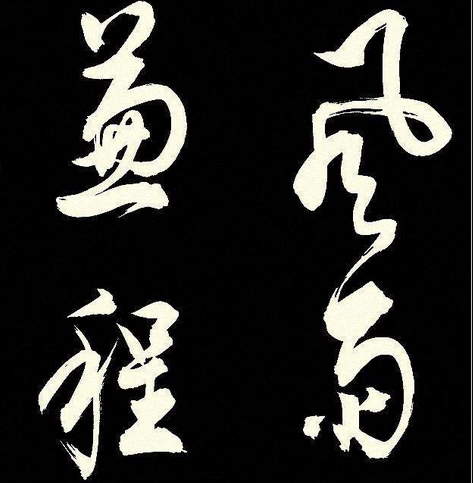 風雨
兼程